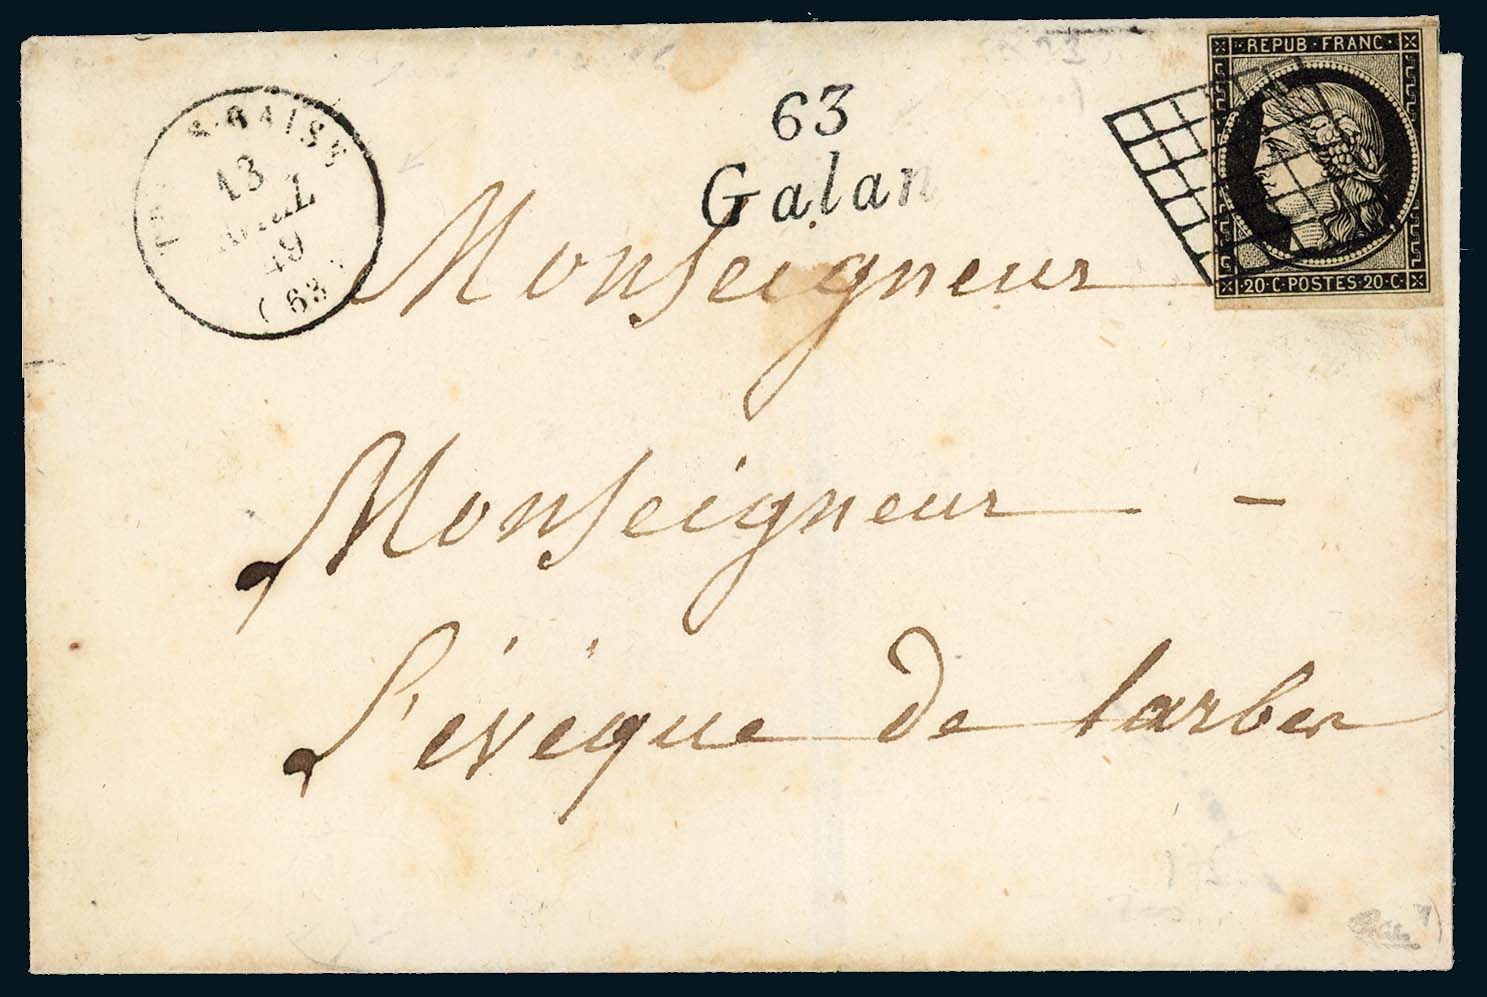 REPUB · FRANC ·
63
Galan
13
AVRIL
49
(63)
20 · C · POSTES · 20 · C ·
Monseigneur
Monseigneur -
L'évêque de tarbes